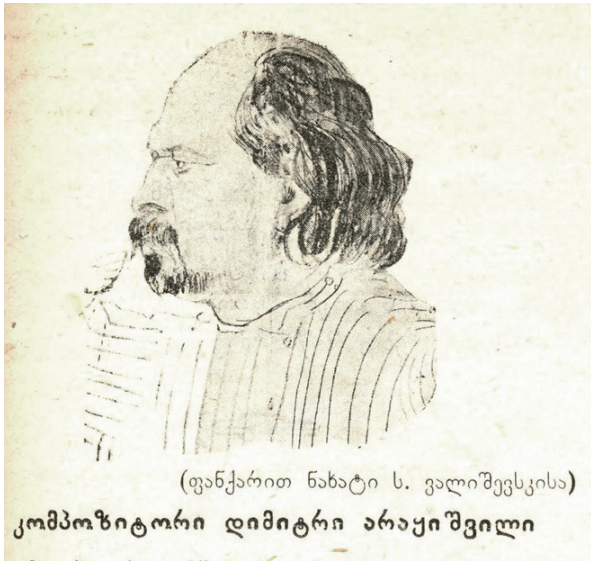 (ფანქარით ნახატი ს. ვალიშევსკისა)
კომპოზიტორი დიმიტრი არაყიშვილი